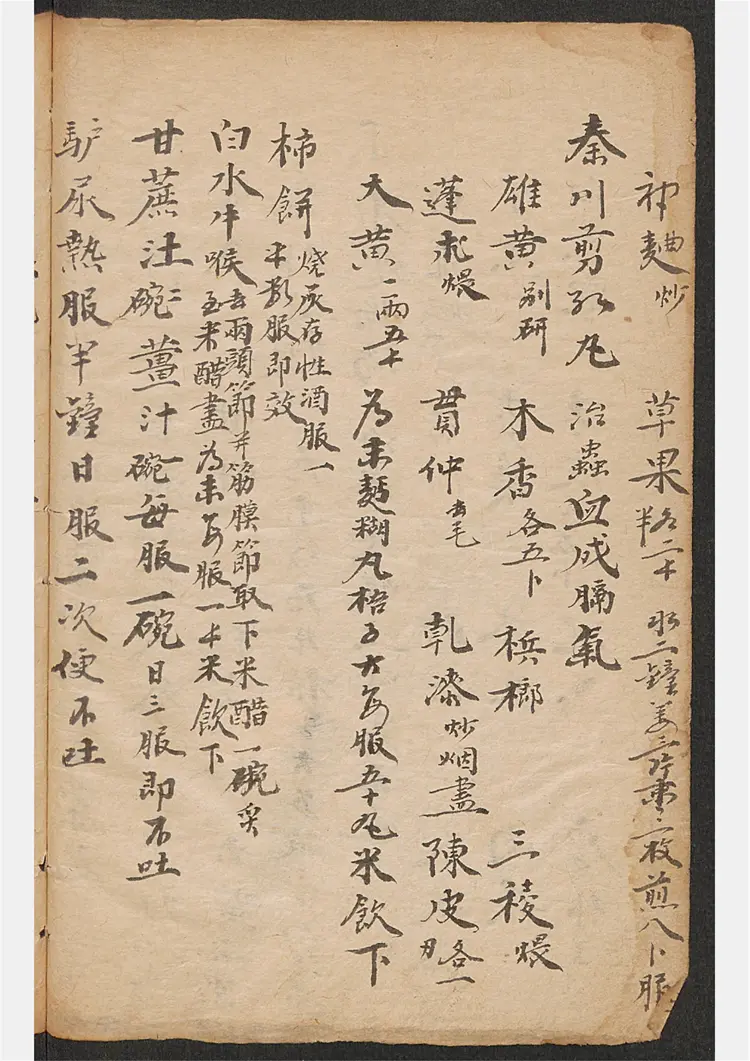 神麯炒 草果各二十 水二鐘姜三片棗二枚煎八卜服
秦川剪紅丸 治蟲血成膈氣
雄黄別研 木香各五卜 梹榔 三稜煨
蓬朮煨 貫仲去毛 乹漆炒烟盡 陳皮各一
大黄一兩五十 為末麵糊丸梧子大每服五十丸米飲下
柿餅燒灰存性酒服一
十數服即效
白水牛喉去兩頭節并筋膜節取下米醋一碗炙
至米醋盡為末每服一十米飲下
甘蔗汁二碗薑汁一碗每服一碗日三服即不吐
驴尿熱服半鐘日服二次便不吐